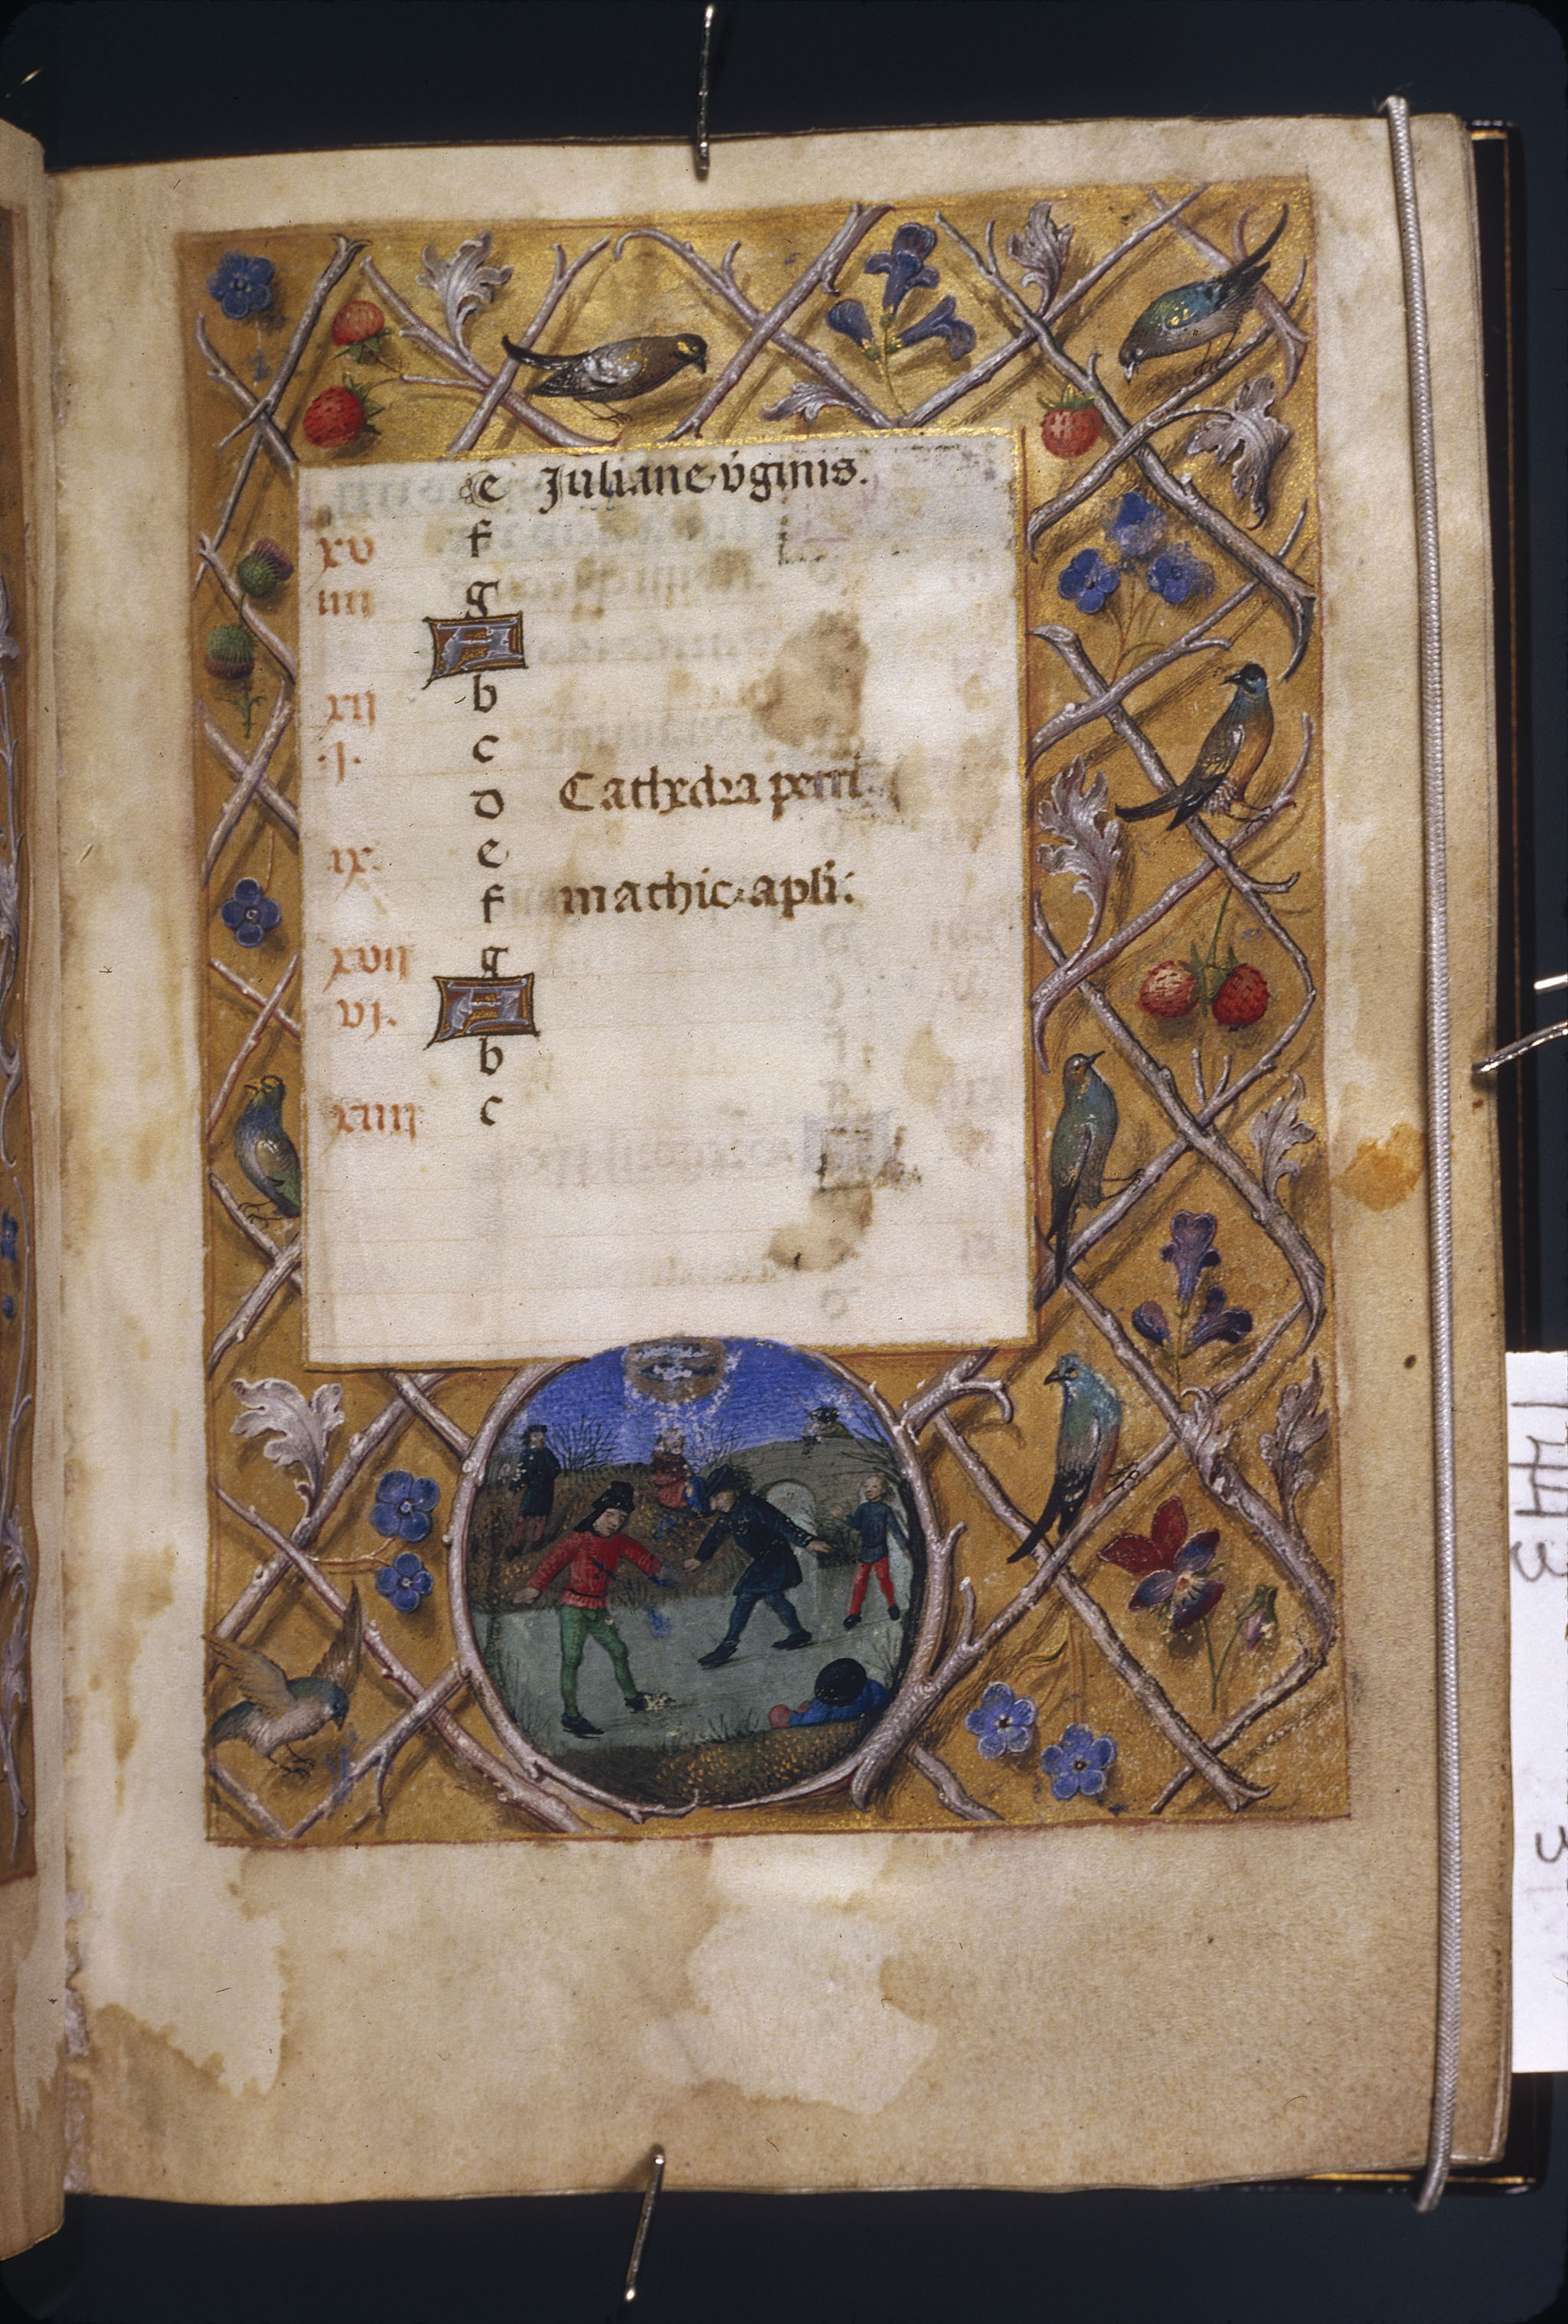 e Juliane v̄ginis.
xv f
iiii g
A
xii b
.j. c
d Cathedra petri.
ix. e
f mathie apli.
xvij g
vj. A
b
xiiij c
443
3